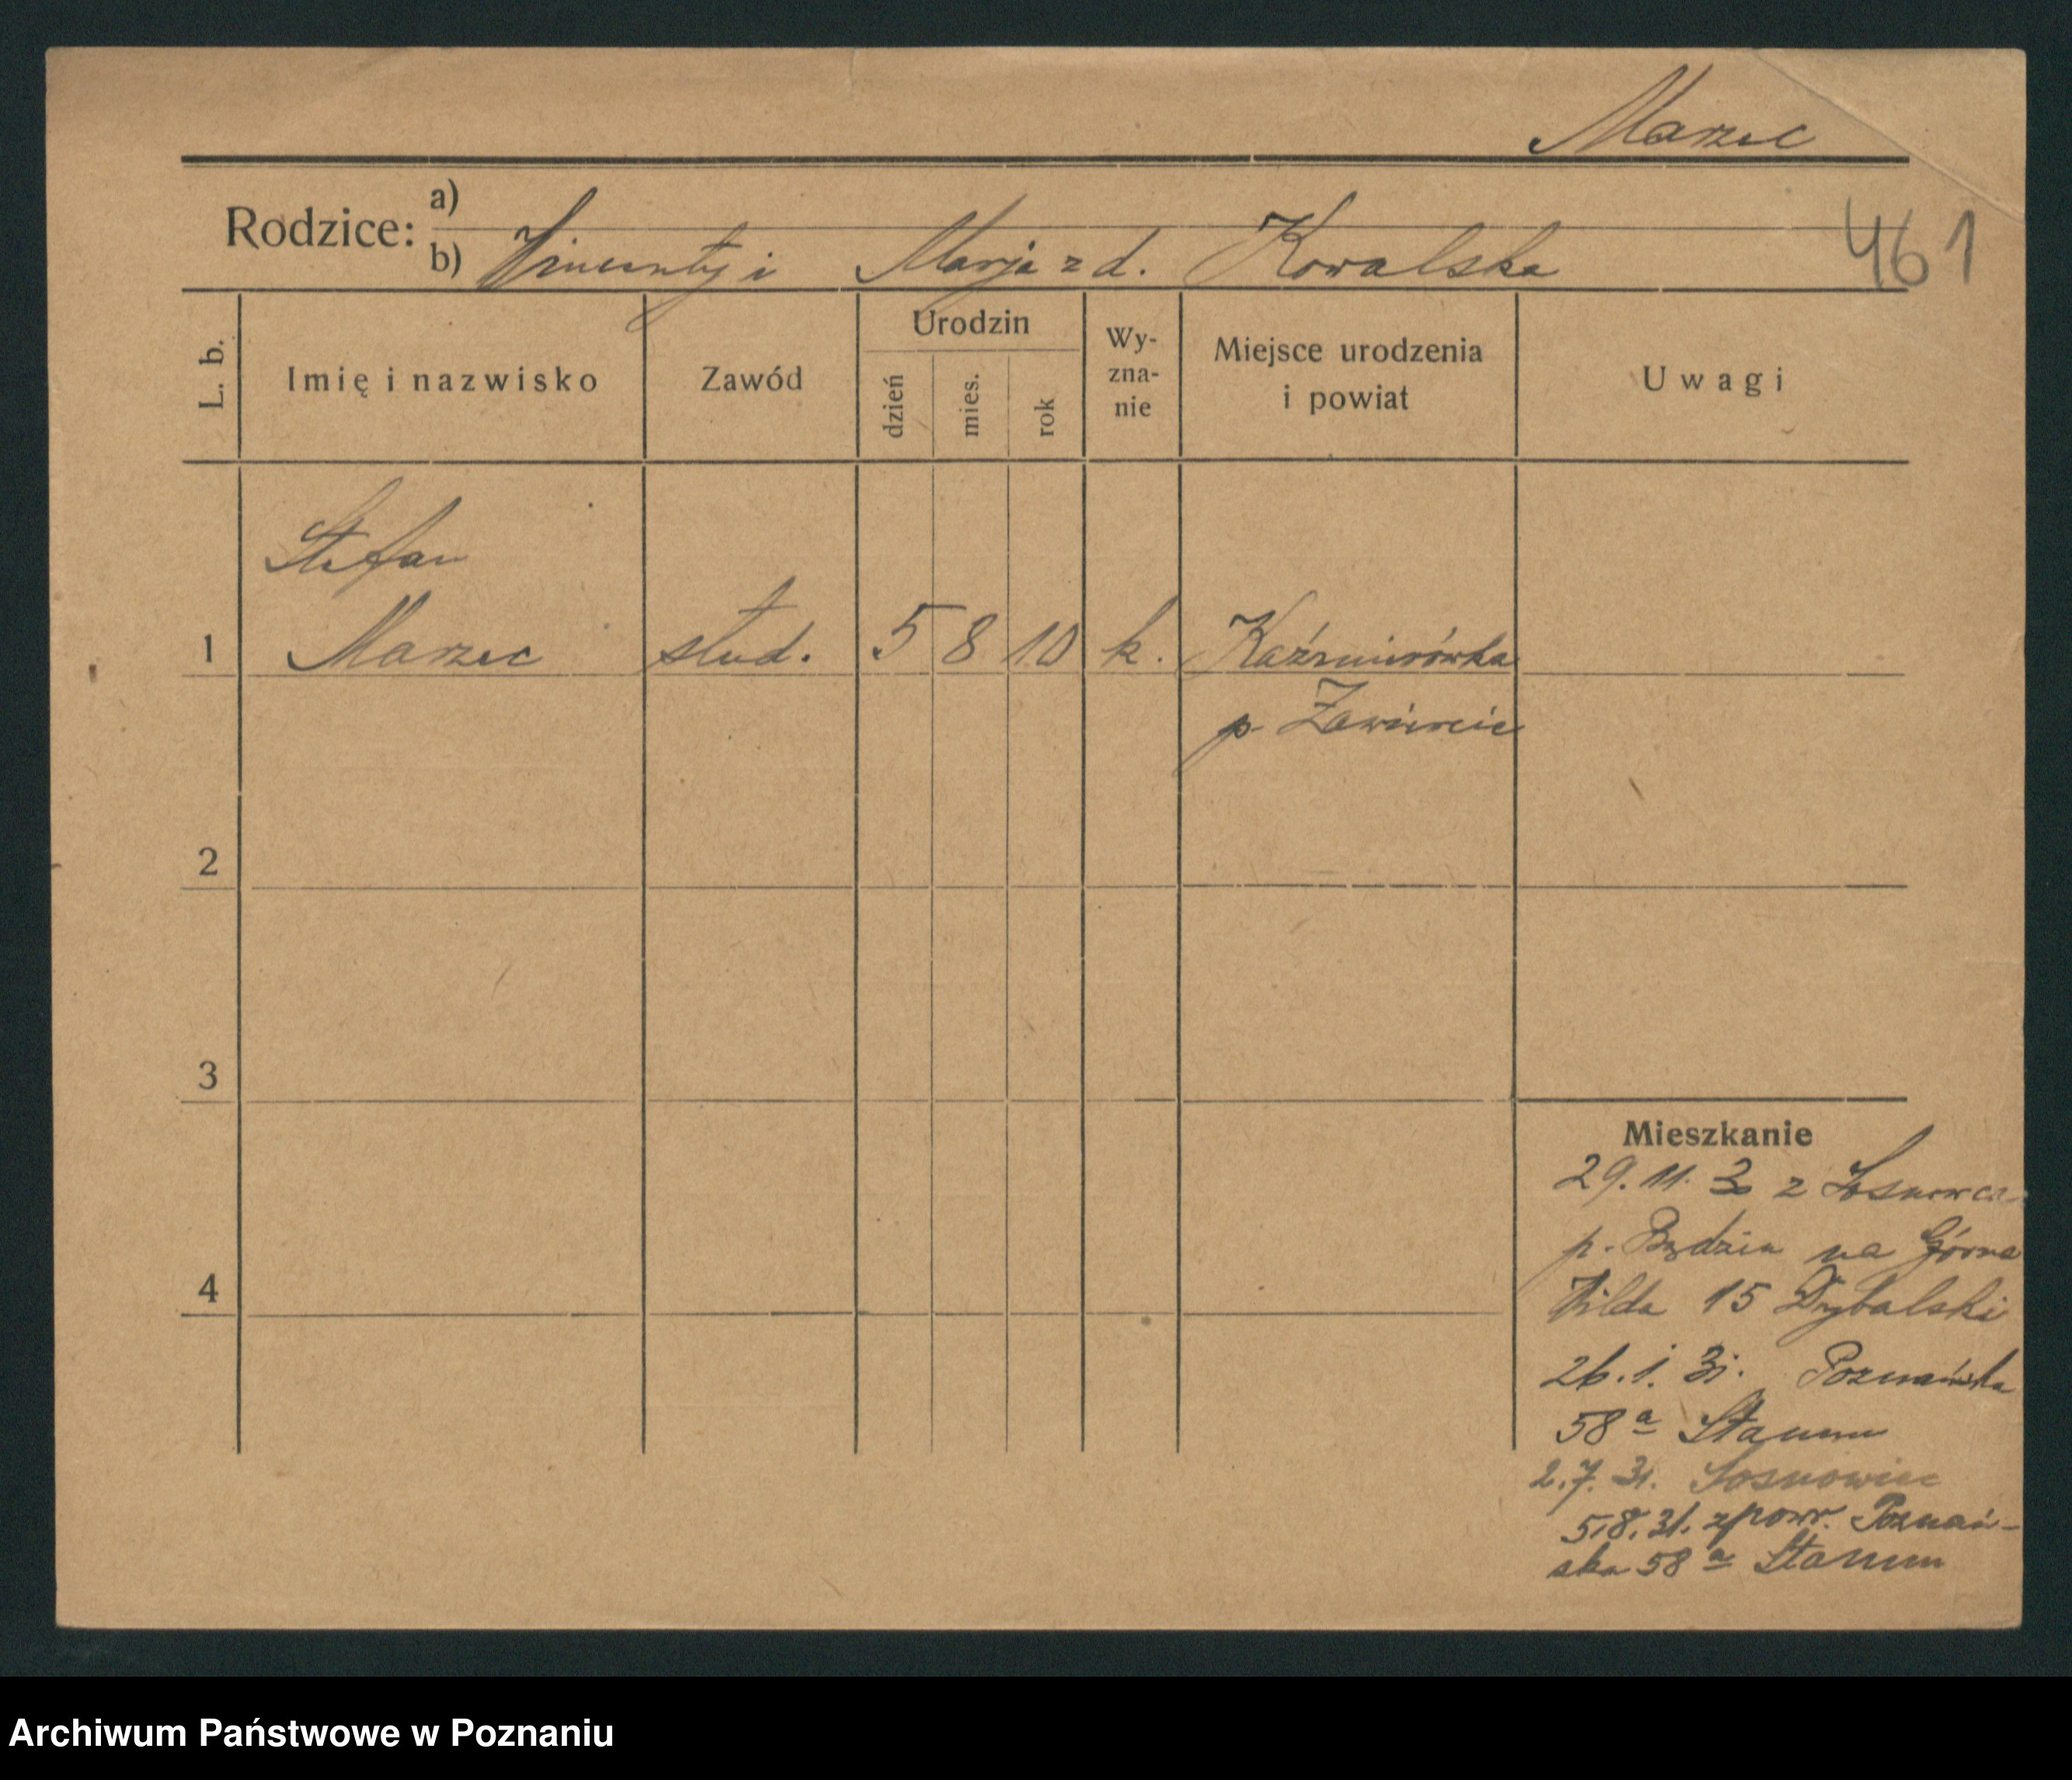 Marzec
461
Rodzice: a)
b) Wincenty i Marja z d. Kowalska
L. b.
Imię i nazwisko
Zawód
Urodzin
dzień
mies.
rok
Wy-
zna-
nie
Miejsce urodzenia
i powiat
Uwagi
Stefan
1 Marzec stud. 5 8 10 k. Kaźmirówka
p. Zawiercie
2
3
4
Mieszkanie
29. 11. 30 z Sosnowca
p. Będzin na Górna
Wilda 15 Drybalski
26. 1. 31. Poznańska
58 a Stamm
2. 7. 31. Sosnowiec
5. 8. 31. zpowr. Poznań-
ska 58 a Stamm
Archiwum Państwowe w Poznaniu